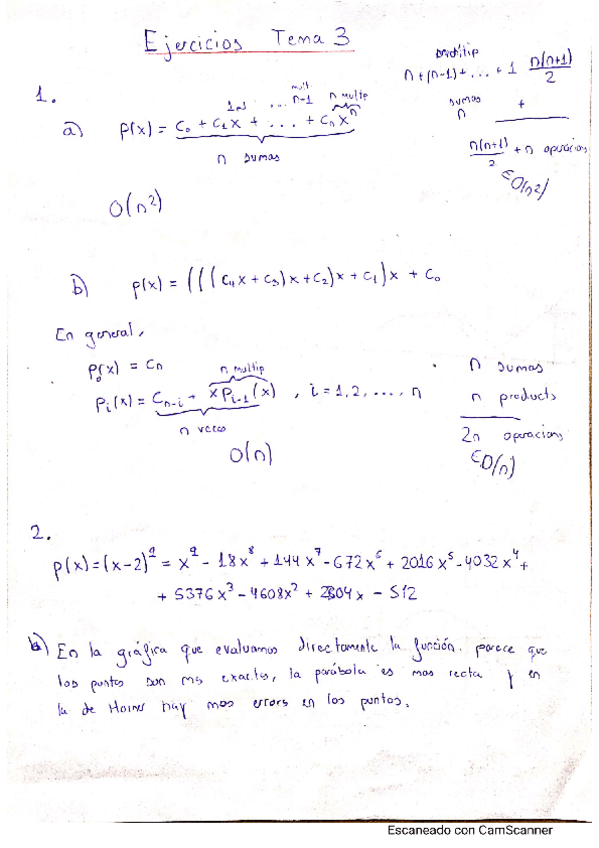 Ejercicios Tema 3
1.
a) p(x) = C₀ + C₁x + ... + Cₙxⁿ
1 ... n-1 n multip
n sumas
n+(n-1)+...+1 n(n+1)/2
sumas
n +
n(n+1)/2 + n operacions
∈O(n²)
O(n²)
b) p(x) = (((C₄x + C₃)x + C₂)x + C₁)x + C₀
En general,
p₀(x) = Cn
n multip
Pᵢ(x) = Cₙ₋ᵢ + xPᵢ₋₁(x) , i = 1, 2, ..., n
n veces
O(n)
n sumas
n products
2n operacions
∈O(n)
2.
p(x) = (x-2)⁹ = x⁹ - 18x⁸ + 144x⁷ - 672x⁶ + 2016x⁵ - 4032x⁴ +
+ 5376x³ - 4608x² + 2304x - 512
b) En la gráfica que evaluamos directamente la función. parece que
los puntos son ms exactos, la parábola es mas recta y en
la de Horner hay mas errors en los puntos.
Escaneado con CamScanner